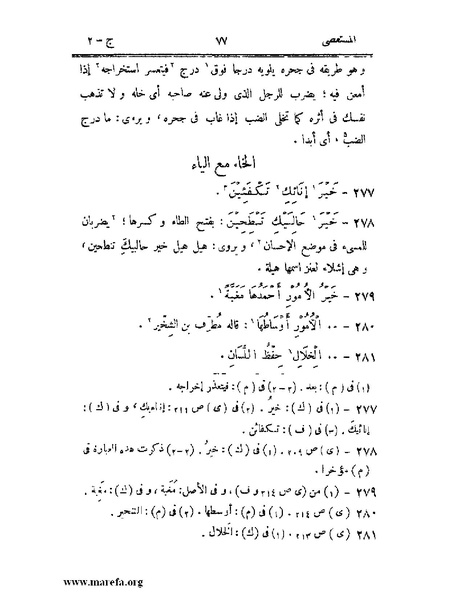 المستقصى ٧٧ ج - ٢
و هو طريقه فى جحره يلويه درجا فوق¹ درج ²فيتعسر استخراجه² إذا
أمعن فيه؛ يضرب للرجل الذى ولى عنه صاحبه أى خله و لا تذهب
نفسك فى أثره كما تخلى الضب إذا غاب فى جحره، و يروى: ما درج
الضب، أى أبدا.
الخاء مع الياء
٢٧٧ - خَيْرَ¹ إِنَائِكِ² تَكْفَئِيْنَ³.
٢٧٨ - خَيْرَ¹ حَالِبَيْكِ تَنْطَحِيْنَ: بفتح الطاء و كسرها؛ ²يضربان
للمسىء فى موضع الإحسان²، و يروى: هيل هيل خير حالبيك تنطحين،
و هى إشلاء لعنز اسمها هيلة.
٢٧٩ - خَيْرُ الْأُمُوْرِ أَحْمَدُهَا مَغَبَّةً¹.
٢٨٠ - ٠٠ الْأُمُوْرِ أَوْسَاطُهَا¹: قاله مُطَرِّف بن الشِّخِّير².
٢٨١ - ٠٠ الْخِلَالِ¹ حِفْظُ اللِّسَانِ.
(١) فى (م): بعد. (٢-٢) فى (م): فيتعذر إخراجه.
٢٧٧ - (١) فى (ك): خيرُ. (٢) فى (ى) ص ٢١١: إناءيك، و فى (ك):
إنائيك. (٣) فى (ف): تكفائن.
٢٧٨ - (ى) ص ٢٠٩. (١) فى (ك): خيرُ. (٢-٢) ذكرت هذه العبارة فى
(م) مؤخرا.
٢٧٩ - (١) من (ى ص ٢١٤ و ف)، و فى الأصل: مَغبة، و فى (ك): مغِبة.
٢٨٠ - (ى) ص ٢١٤. (١) فى (م): أوسطها. (٢) فى (م): الشخير.
٢٨١ - (ى) ص ٢١٣. (١) فى (ك): الخلال.
www.marefa.org